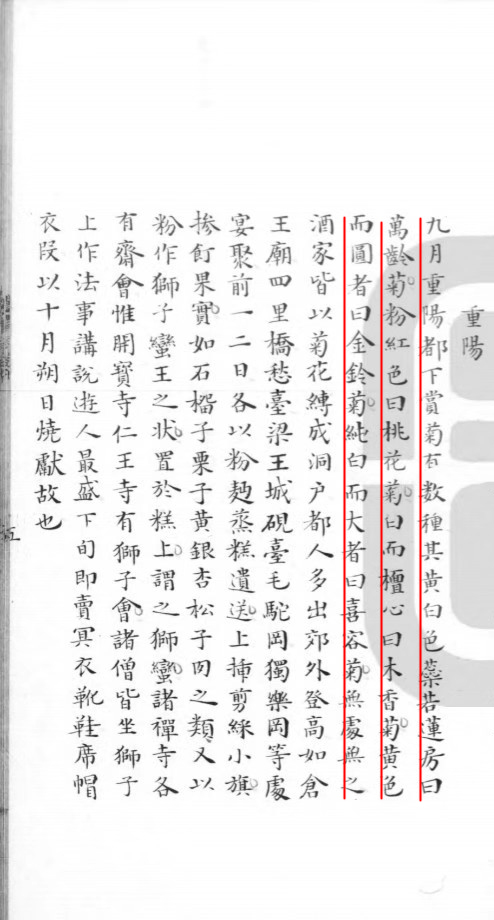 重陽
九月重陽都下賞菊有數種其黃白色蘂若蓮房曰
萬齡菊粉紅色曰桃花菊白而檀心曰木香菊黃色
而圓者曰金鈴菊純白而大者曰喜容菊無處無之
酒家皆以菊花縛成洞户都人多出郊外登高如倉
王廟四里橋愁臺梁王城硯臺毛駝岡獨樂岡等處
宴聚前一二日各以粉麪蒸糕遺送上揷剪綵小旗
摻飣果實如石榴子栗子黃銀杏松子肉之類又以
粉作獅子蠻王之狀置於糕上謂之獅蠻諸禪寺各
有齋會惟開寶寺仁王寺有獅子會諸僧皆坐獅子
上作法事講說遊人最盛下旬即賣冥衣靴鞋席帽
衣段以十月朔日燒獻故也